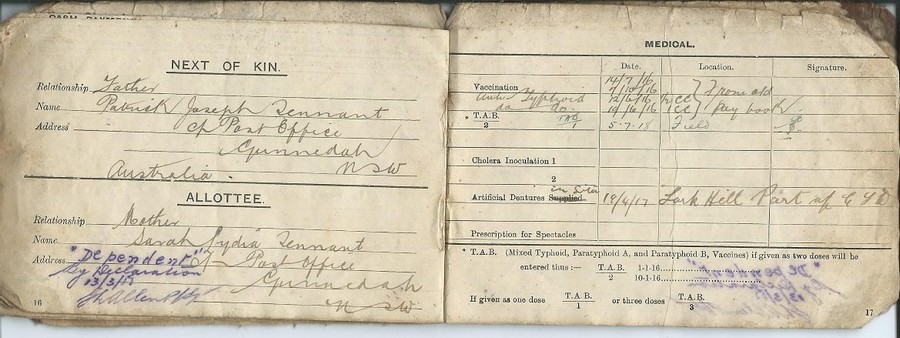 NEXT OF KIN.
Relationship Father
Name Patrick Joseph Tennant
Address c/o Post Office
Gunnedah
NSW
Australia.
ALLOTTEE.
Relationship Mother
Name Sarah Lydia Tennant
Address "Dependent" Post Office
By Declaration Gunnedah
13/3/17
NSW
16
MEDICAL.
Date. Location. Signature.
14/7/16
Vaccination 7/10/16 From old
Anti Typhoid 12/6/16 Pay book
do do. 19/6/16 1cc
* T.A.B. 5.7.18 Field
2
Cholera Inoculation 1
2
Artificial Dentures Supplied 19/4/17 Lark Hill Part of
Prescription for Spectacles
* T.A.B. (Mixed Typhoid, Paratyphoid A, and Paratyphoid B, Vaccines) if given as two doses will be
entered thus :— T.A.B. 1-1-16
2 10-1-16
If given as one dose T.A.B. or three doses T.A.B.
1 3
17